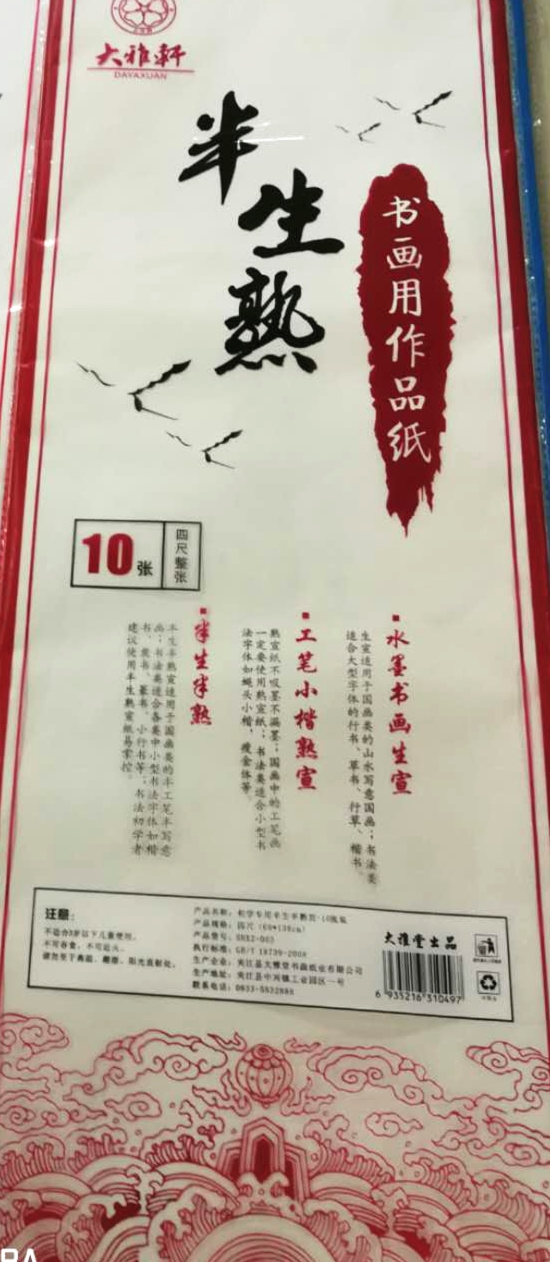 大雅軒
DAYAXUAN
半生熟
书画用作品纸
10张
四尺整张
水墨书画生宣
生宣适用于国画类的山水写意国画；书法类
适合大型字体的行书、草书、行草、楷书。
工笔小楷熟宣
熟宣纸不吸墨不漏墨；国画中的工笔画
一定要使用熟宣纸；书法类适合小型书
法字体如蝇头小楷，瘦金体等。
半生半熟
本生半熟宣适用于国画类的半工笔半写意
画；书法类适合各类中小型书法字体如楷
书、隶书、篆书、小行书等；书法初学者
建议使用半生熟宣纸易掌控。
注意：
不适合3岁以下儿童使用。
不可吞食，不可近火。
请勿至于高温、潮湿、阳光直射处。
产品名称：初学专用半生半熟宣-10张装
产品规格：四尺（69*138cm）
执行标准：GB/T 18739-2008
生产企业：夹江县大雅堂书画纸业有限公司
生产地址：夹江县中兴镇工业园区一号
联系电话：0833-5932888
大雅堂出品
6 935216 310497